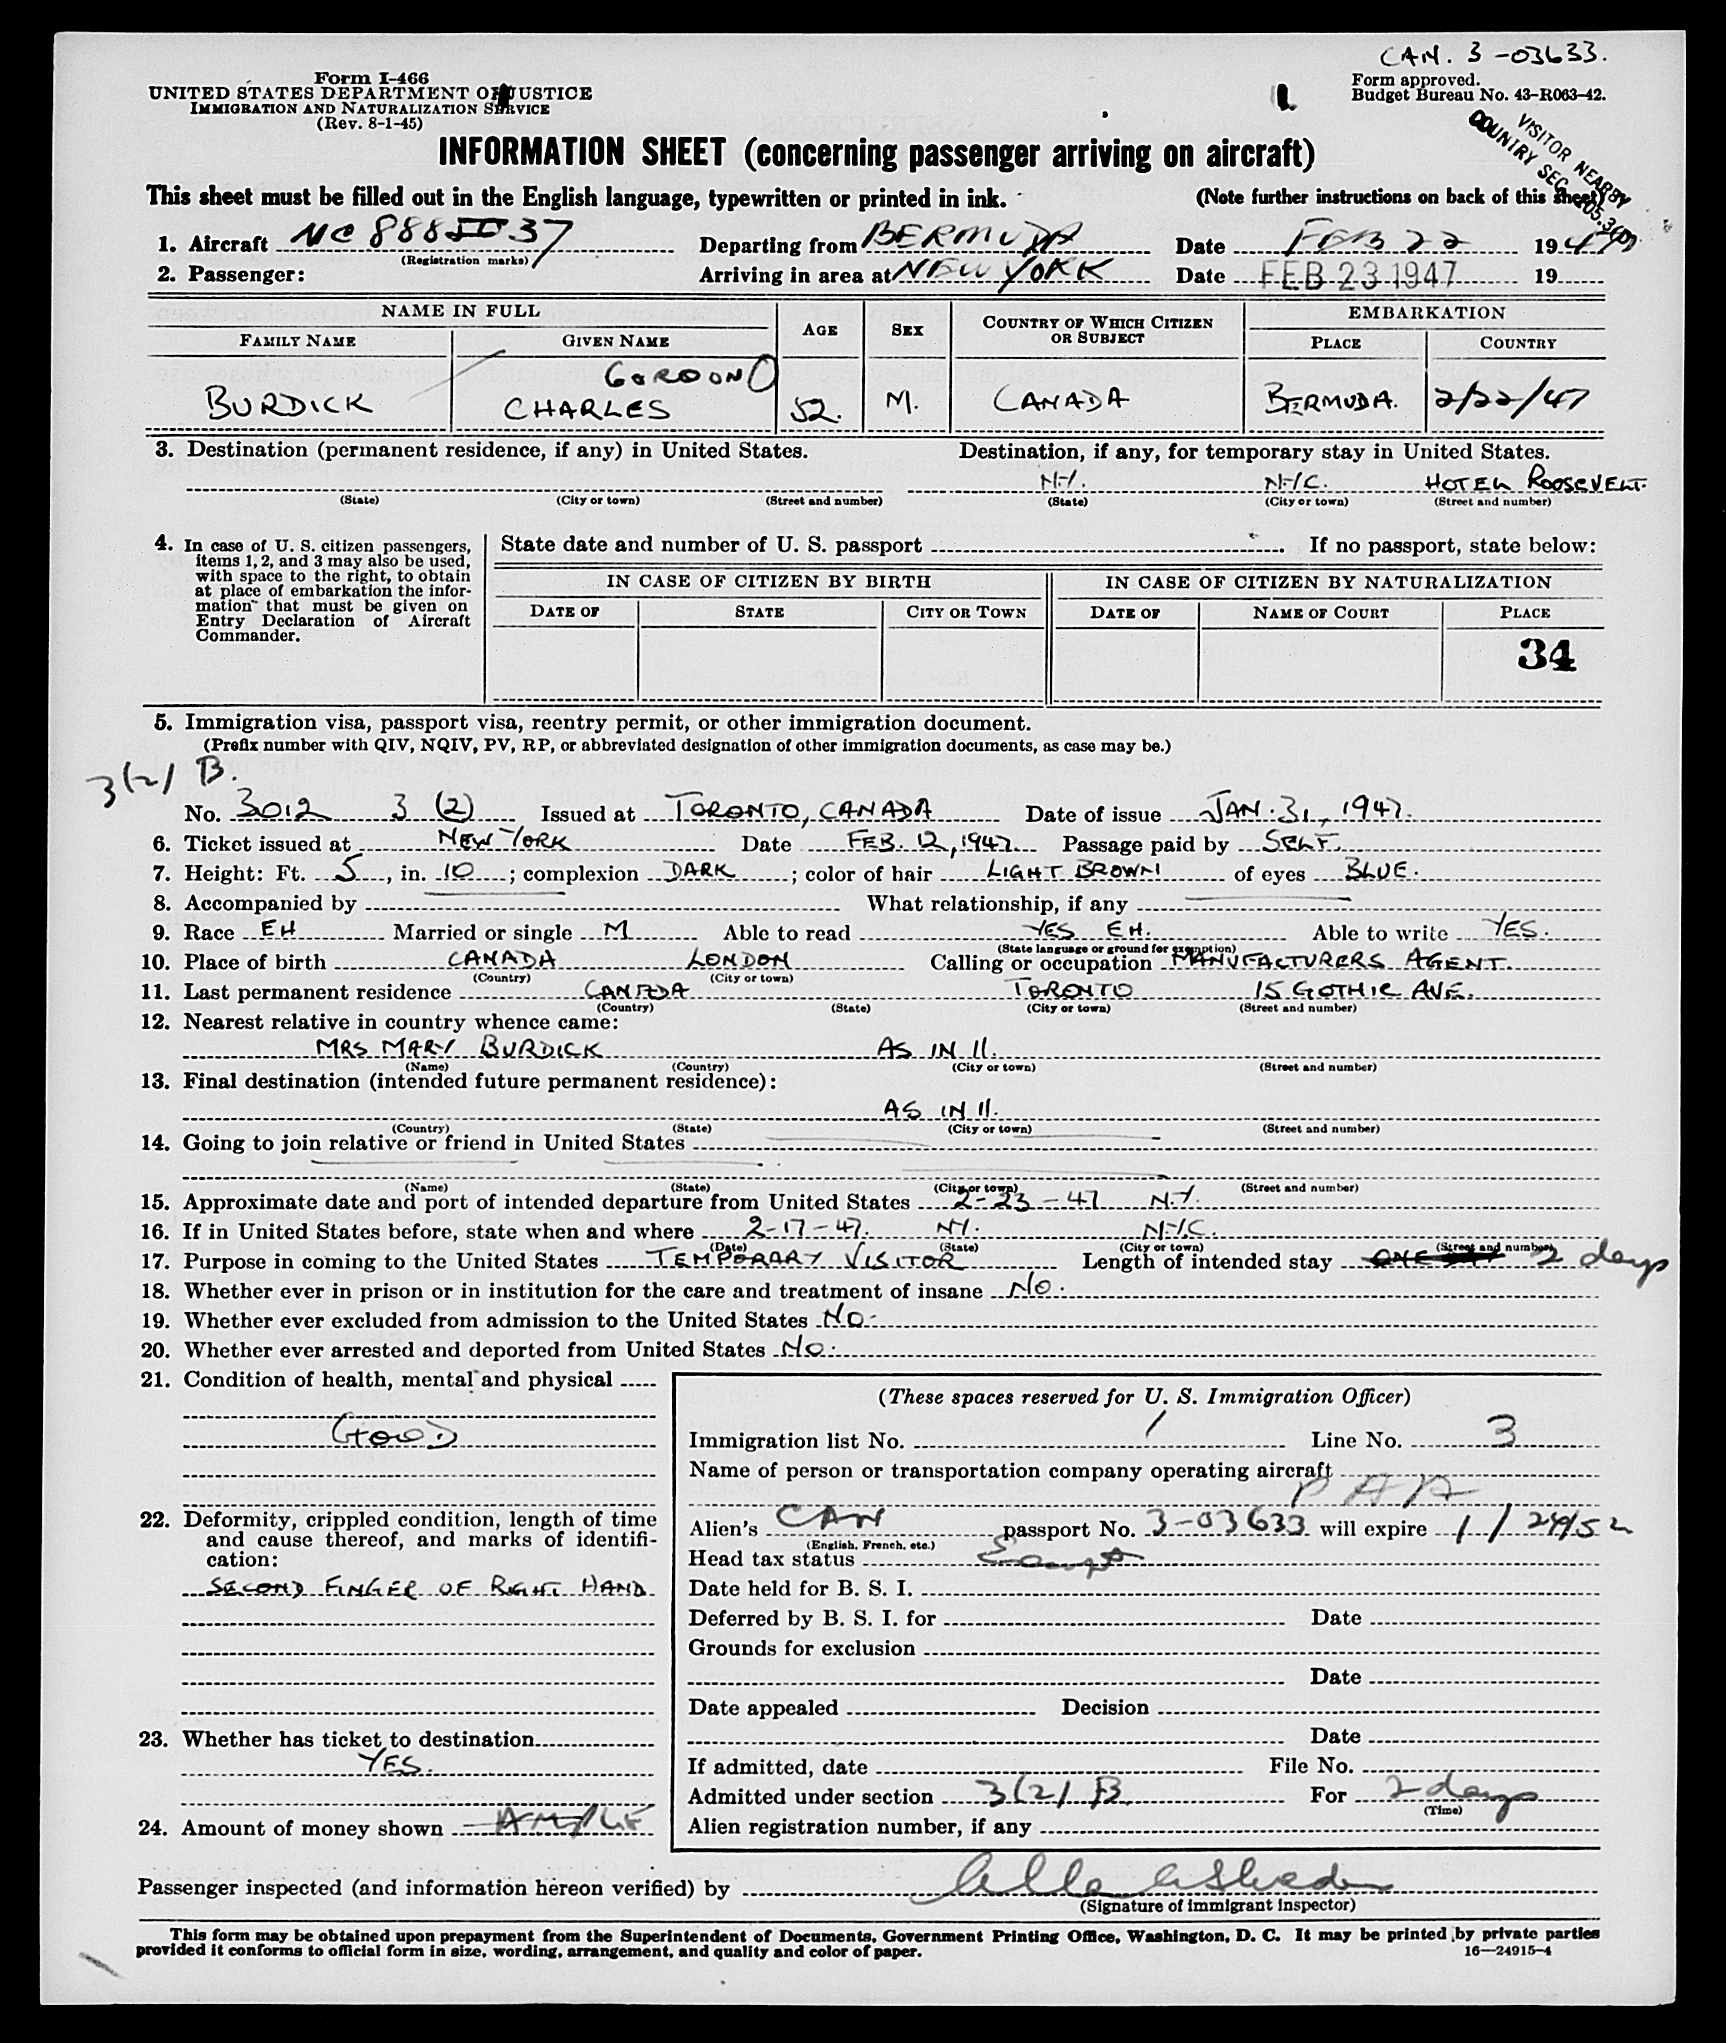 CAN. 3-03633.
Form I-466
UNITED STATES DEPARTMENT OF JUSTICE
IMMIGRATION AND NATURALIZATION SERVICE
(Rev. 8-1-45)
Form approved.
Budget Bureau No. 43-R063-42.
VISITOR NEARBY
COUNTRY SEC.
INFORMATION SHEET (concerning passenger arriving on aircraft)
This sheet must be filled out in the English language, typewritten or printed in ink. (Note further instructions on back of this sheet)
1. Aircraft NC 888 37 Departing from BERMUDA Date FEB 22 1947
(Registration marks)
2. Passenger: Arriving in area at NEW YORK Date FEB 23 1947 19
NAME IN FULL AGE SEX COUNTRY OF WHICH CITIZEN OR SUBJECT EMBARKATION
FAMILY NAME GIVEN NAME PLACE COUNTRY
GORDON
BURDICK CHARLES 52. M. CANADA BERMUDA. 2/22/47
3. Destination (permanent residence, if any) in United States. Destination, if any, for temporary stay in United States.
N.Y. N.Y.C. HOTEL ROOSEVELT.
(State) (City or town) (Street and number) (State) (City or town) (Street and number)
4. In case of U. S. citizen passengers, items 1, 2, and 3 may also be used, with space to the right, to obtain at place of embarkation the information that must be given on Entry Declaration of Aircraft Commander.
State date and number of U. S. passport . If no passport, state below:
IN CASE OF CITIZEN BY BIRTH IN CASE OF CITIZEN BY NATURALIZATION
DATE OF STATE CITY OR TOWN DATE OF NAME OF COURT PLACE
34
5. Immigration visa, passport visa, reentry permit, or other immigration document.
(Prefix number with QIV, NQIV, PV, RP, or abbreviated designation of other immigration documents, as case may be.)
3(2) B.
No. 3012 3 (2) Issued at TORONTO, CANADA Date of issue JAN. 31, 1947.
6. Ticket issued at NEW YORK Date FEB. 12, 1947 Passage paid by SELF.
7. Height: Ft. 5, in. 10; complexion DARK; color of hair LIGHT BROWN of eyes BLUE.
8. Accompanied by What relationship, if any
9. Race EH Married or single M Able to read YES EH. Able to write YES.
(State language or ground for exemption)
10. Place of birth CANADA LONDON Calling or occupation MANUFACTURERS AGENT.
(Country) (City or town)
11. Last permanent residence CANADA TORONTO 15 GOTHIC AVE.
(Country) (State) (City or town) (Street and number)
12. Nearest relative in country whence came:
MRS MARY BURDICK AS IN 11.
(Name) (Country) (City or town) (Street and number)
13. Final destination (intended future permanent residence):
AS IN 11.
(Country) (State) (City or town) (Street and number)
14. Going to join relative or friend in United States
(Name) (State) (City or town) (Street and number)
15. Approximate date and port of intended departure from United States 2-23-47 N.Y.
16. If in United States before, state when and where 2-17-47. NY. N.Y.C.
(Date) (State) (City or town) (Street and number)
17. Purpose in coming to the United States TEMPORARY VISITOR Length of intended stay ONE 2 days
18. Whether ever in prison or in institution for the care and treatment of insane NO.
19. Whether ever excluded from admission to the United States NO.
20. Whether ever arrested and deported from United States NO.
21. Condition of health, mental and physical
GOOD
22. Deformity, crippled condition, length of time and cause thereof, and marks of identification:
SECOND FINGER OF RIGHT HAND
23. Whether has ticket to destination
YES.
24. Amount of money shown AMPLE
(These spaces reserved for U. S. Immigration Officer)
Immigration list No. 1 Line No. 3
Name of person or transportation company operating aircraft
PAA
Alien's CAN passport No. 3-03633 will expire 1/29/52
(English, French, etc.)
Head tax status Exempt
Date held for B. S. I.
Deferred by B. S. I. for Date
Grounds for exclusion
Date
Date appealed Decision
Date
If admitted, date File No.
Admitted under section 3(2) B. For 2 days
(Time)
Alien registration number, if any
Passenger inspected (and information hereon verified) by
(Signature of immigrant inspector)
This form may be obtained upon prepayment from the Superintendent of Documents, Government Printing Office, Washington, D. C. It may be printed by private parties
provided it conforms to official form in size, wording, arrangement, and quality and color of paper. 16—24915-4